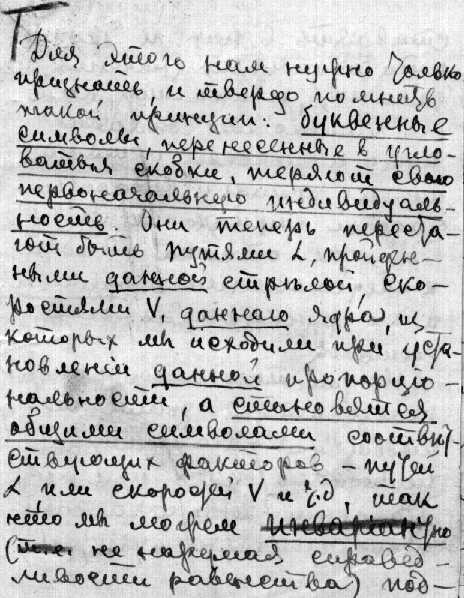 Для этого нам нужно только
признать, и твердо помнить
такой принцип: буквенные
символы, перенесенные в угло-
ватыя скобки, теряют свою
первоначальную индивидуаль-
ность. Они теперь переста-
ют быть путями L, пройден-
ными данной стрѣлой, ско-
ростями V, даннаго ядра, из
которых мы исходили при уста-
новленіи данной пропорціо-
нальности, а становятся
общими символами соотвѣт-
ствующих факторов – путей
L, или скоростей V и т.д., так
что мы можем инваріантно
(т.е. не нарушая справед-
ливости равенства) под-